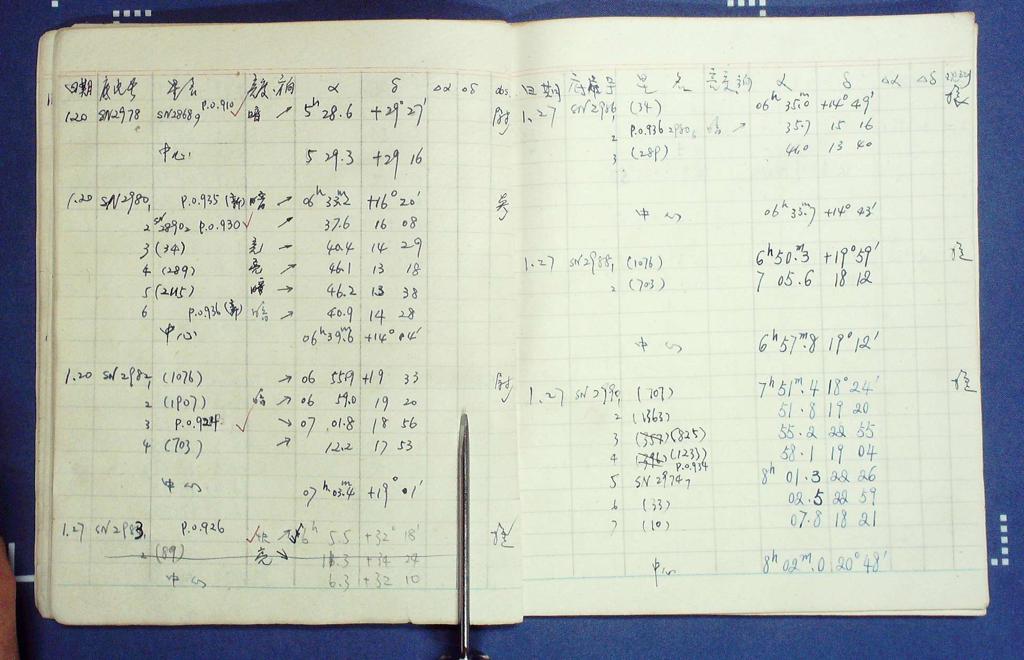 日期 底片号 星名 亮度 方向 α δ Δα Δδ obs.
1.20 SN2978 SN2868₉ P.O.910 暗 ↗ 5ʰ 28.6 +29° 27'
中心 5 29.3 +29 16
1.20 SN2980, P.O.935 (新) 暗 ↗ 06ʰ 33.2ᵐ +16° 20'
2 P.O.930 ↗ 37.6 16 08
3 (34) 亮 → 40.4 14 29
4 (289) 亮 ↗ 46.1 13 18
5 暗 → 46.2 13 38
6 P.O.936 (新) 暗 ↗ 40.9 14 28
中心 06ʰ 39.6ᵐ +14° 04'
1.20 SN2982, (1076) → 06 55.9 +19 33
2 (1907) 暗 → 06 59.0 19 20
3 P.O.924 ↘ 07 01.8 18 56
4 (703) ↗ 12.2 17 53
中心 07ʰ 03.4ᵐ +19° 01'
1.27 SN2983, P.O.926 5.5 +32° 18'
2 (89) 亮 ↘ +34 24
中心 6.3 +32 10
日期 底片号 星名 亮度 方向 α δ Δα Δδ
1.27 SN2986, (34) 06ʰ 35.0ᵐ +14° 49'
2 P.O.936 2980₆ 暗 ↗ 35.7 15 16
3 (289) 46.0 13 40
中心 06ʰ 35.7ᵐ +14° 43'
1.27 SN2988, (1076) 6ʰ 50.3ᵐ +19° 59'
2 (703) 7 05.6 18 12
中心 6ʰ 57.8ᵐ 19° 12'
1.27 SN2990, (707) 7ʰ 51.4ᵐ 18° 24'
2 (1363) 51.8 19 20
3 (825) 55.2 22 55
4 (1233) 58.1 19 04
5 SN2974₇ P.O.934 8ʰ 01.3 22 26
6 (33) 02.5 22 59
7 (10) 07.8 18 21
中心 8ʰ 02.0ᵐ 20° 48'